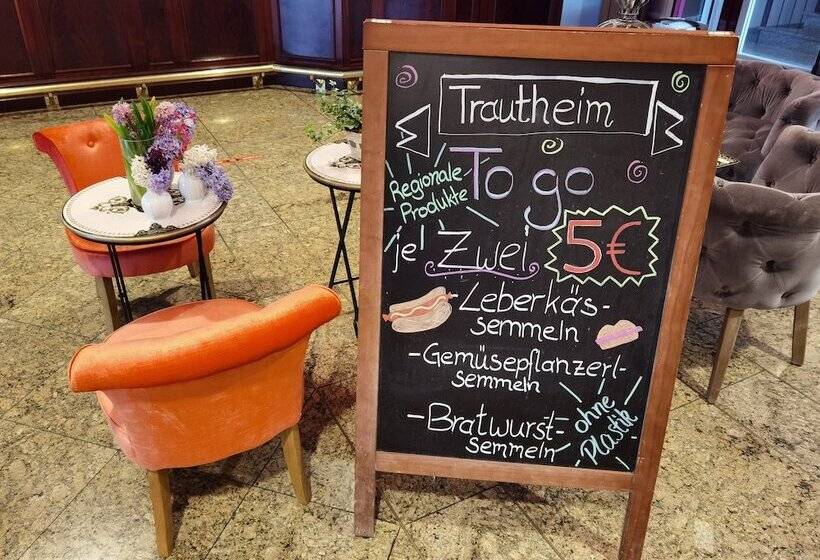 Trautheim
To go
Regionale
Produkte
je Zwei 5€
Leberkäs-
semmeln
-Gemüsepflanzerl-
semmeln
-Bratwurst-
semmeln
ohne
Plastik